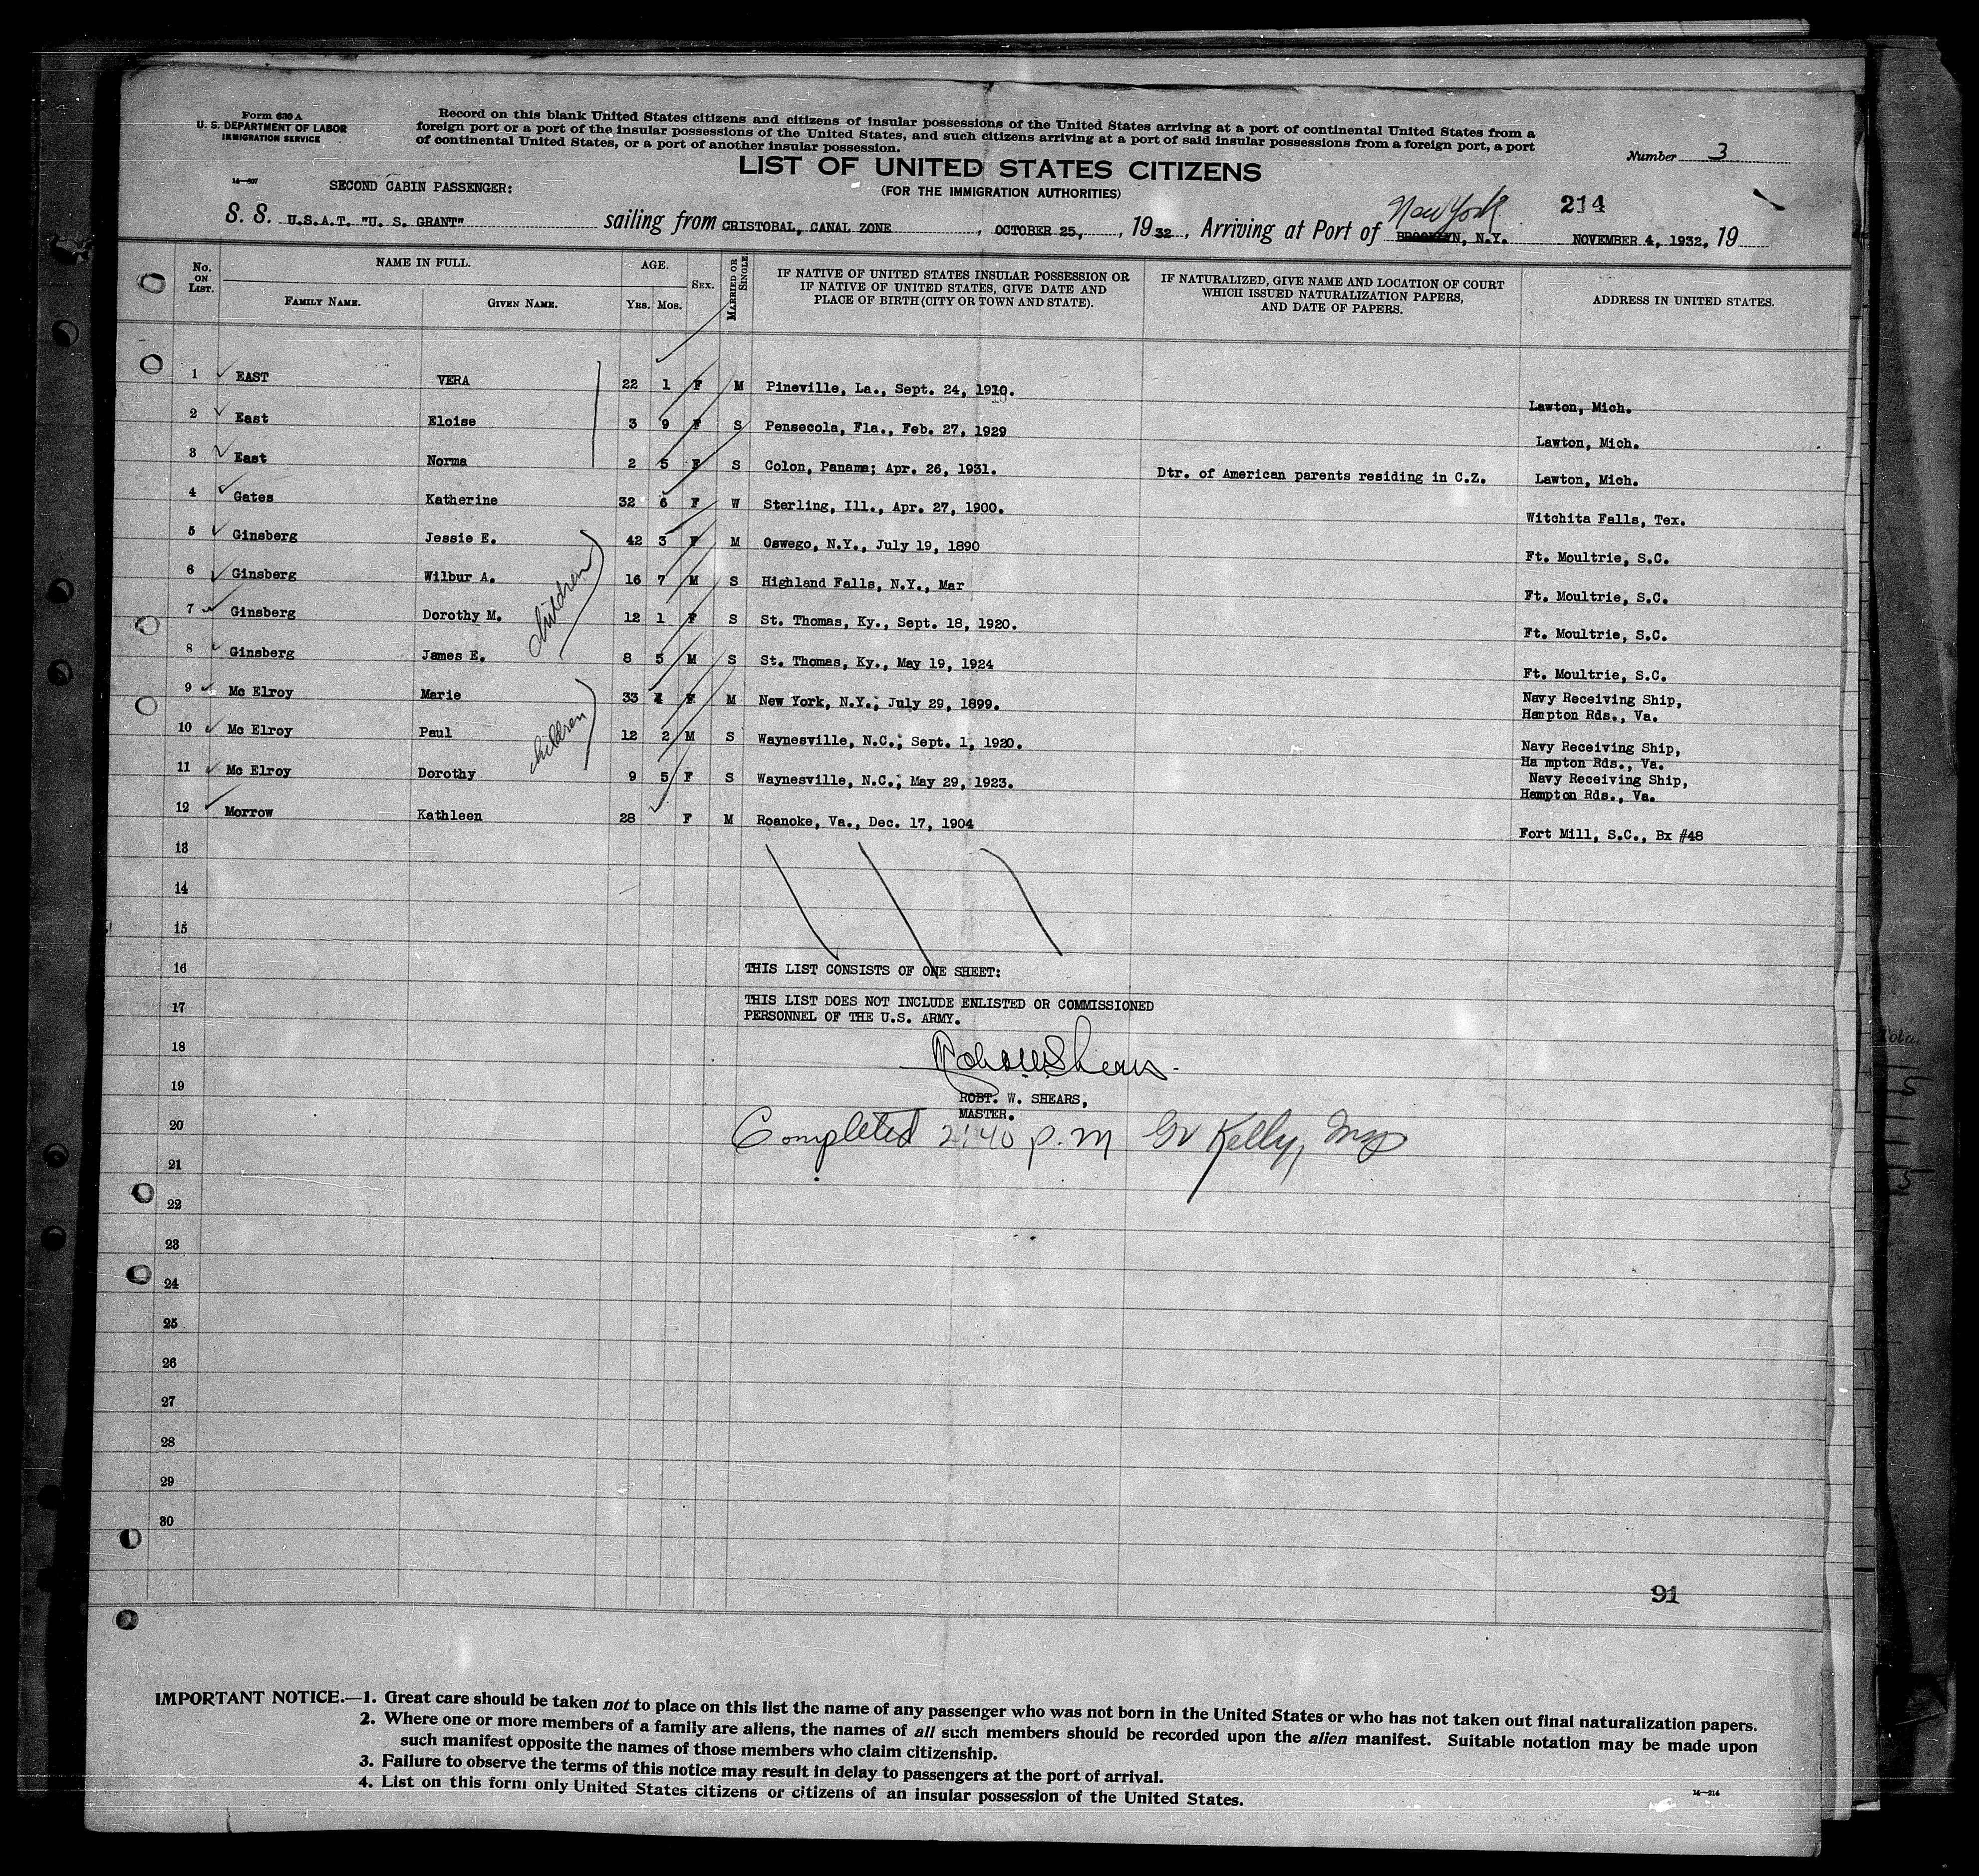 Form 630 A
U. S. DEPARTMENT OF LABOR
IMMIGRATION SERVICE
Record on this blank United States citizens and citizens of insular possessions of the United States arriving at a port of continental United States from a
foreign port or a port of the insular possessions of the United States, and such citizens arriving at a port of said insular possessions from a foreign port, a port
of continental United States, or a port of another insular possession.
LIST OF UNITED STATES CITIZENS
(FOR THE IMMIGRATION AUTHORITIES)
Number 3
14—507
SECOND CABIN PASSENGER:
New York
214
S. S. U.S.A.T. "U. S. GRANT" sailing from CRISTOBAL, CANAL ZONE, OCTOBER 25, , 1932, Arriving at Port of BROOKLYN, N.Y. NOVEMBER 4, 1932, 19
No. ON LIST.
NAME IN FULL.
FAMILY NAME. GIVEN NAME.
AGE.
YRS. MOS.
SEX.
MARRIED OR SINGLE.
IF NATIVE OF UNITED STATES INSULAR POSSESSION OR
IF NATIVE OF UNITED STATES, GIVE DATE AND
PLACE OF BIRTH (CITY OR TOWN AND STATE).
IF NATURALIZED, GIVE NAME AND LOCATION OF COURT
WHICH ISSUED NATURALIZATION PAPERS,
AND DATE OF PAPERS.
ADDRESS IN UNITED STATES.
1 EAST VERA 22 1 F M Pineville, La., Sept. 24, 1910. Lawton, Mich.
2 East Eloise 3 9 F S Pensecola, Fla., Feb. 27, 1929 Lawton, Mich.
3 East Norma 2 5 F S Colon, Panama; Apr. 26, 1931. Dtr. of American parents residing in C.Z. Lawton, Mich.
4 Gates Katherine 32 6 F W Sterling, Ill., Apr. 27, 1900. Witchita Falls, Tex.
5 Ginsberg Jessie E. 42 3 F M Oswego, N.Y., July 19, 1890 Ft. Moultrie, S.C.
6 Ginsberg Wilbur A. 16 7 M S Highland Falls, N.Y., Mar Ft. Moultrie, S.C.
7 Ginsberg Dorothy M. 12 1 F S St. Thomas, Ky., Sept. 18, 1920. Ft. Moultrie, S.C.
children
8 Ginsberg James E. 8 5 M S St. Thomas, Ky., May 19, 1924 Ft. Moultrie, S.C.
9 Mc Elroy Marie 33 F M New York, N.Y.; July 29, 1899. Navy Receiving Ship,
Hampton Rds., Va.
10 Mc Elroy Paul 12 2 M S Waynesville, N.C.; Sept. 1, 1920. Navy Receiving Ship,
Ha mpton Rds., Va.
children
11 Mc Elroy Dorothy 9 5 F S Waynesville, N.C.; May 29, 1923. Navy Receiving Ship,
Hampton Rds., Va.
12 Morrow Kathleen 28 F M Roanoke, Va., Dec. 17, 1904 Fort Mill, S.C., Bx #48
13
14
15
16 THIS LIST CONSISTS OF ONE SHEET:
17 THIS LIST DOES NOT INCLUDE ENLISTED OR COMMISSIONED
PERSONNEL OF THE U.S. ARMY.
18
19 ROBT. W. SHEARS,
MASTER.
20 Completed 2:40 p.m Kelly, Insp
21
22
23
24
25
26
27
28
29
30
91
IMPORTANT NOTICE.—1. Great care should be taken not to place on this list the name of any passenger who was not born in the United States or who has not taken out final naturalization papers.
2. Where one or more members of a family are aliens, the names of all such members should be recorded upon the alien manifest. Suitable notation may be made upon
such manifest opposite the names of those members who claim citizenship.
3. Failure to observe the terms of this notice may result in delay to passengers at the port of arrival.
4. List on this form only United States citizens or citizens of an insular possession of the United States.
14—214